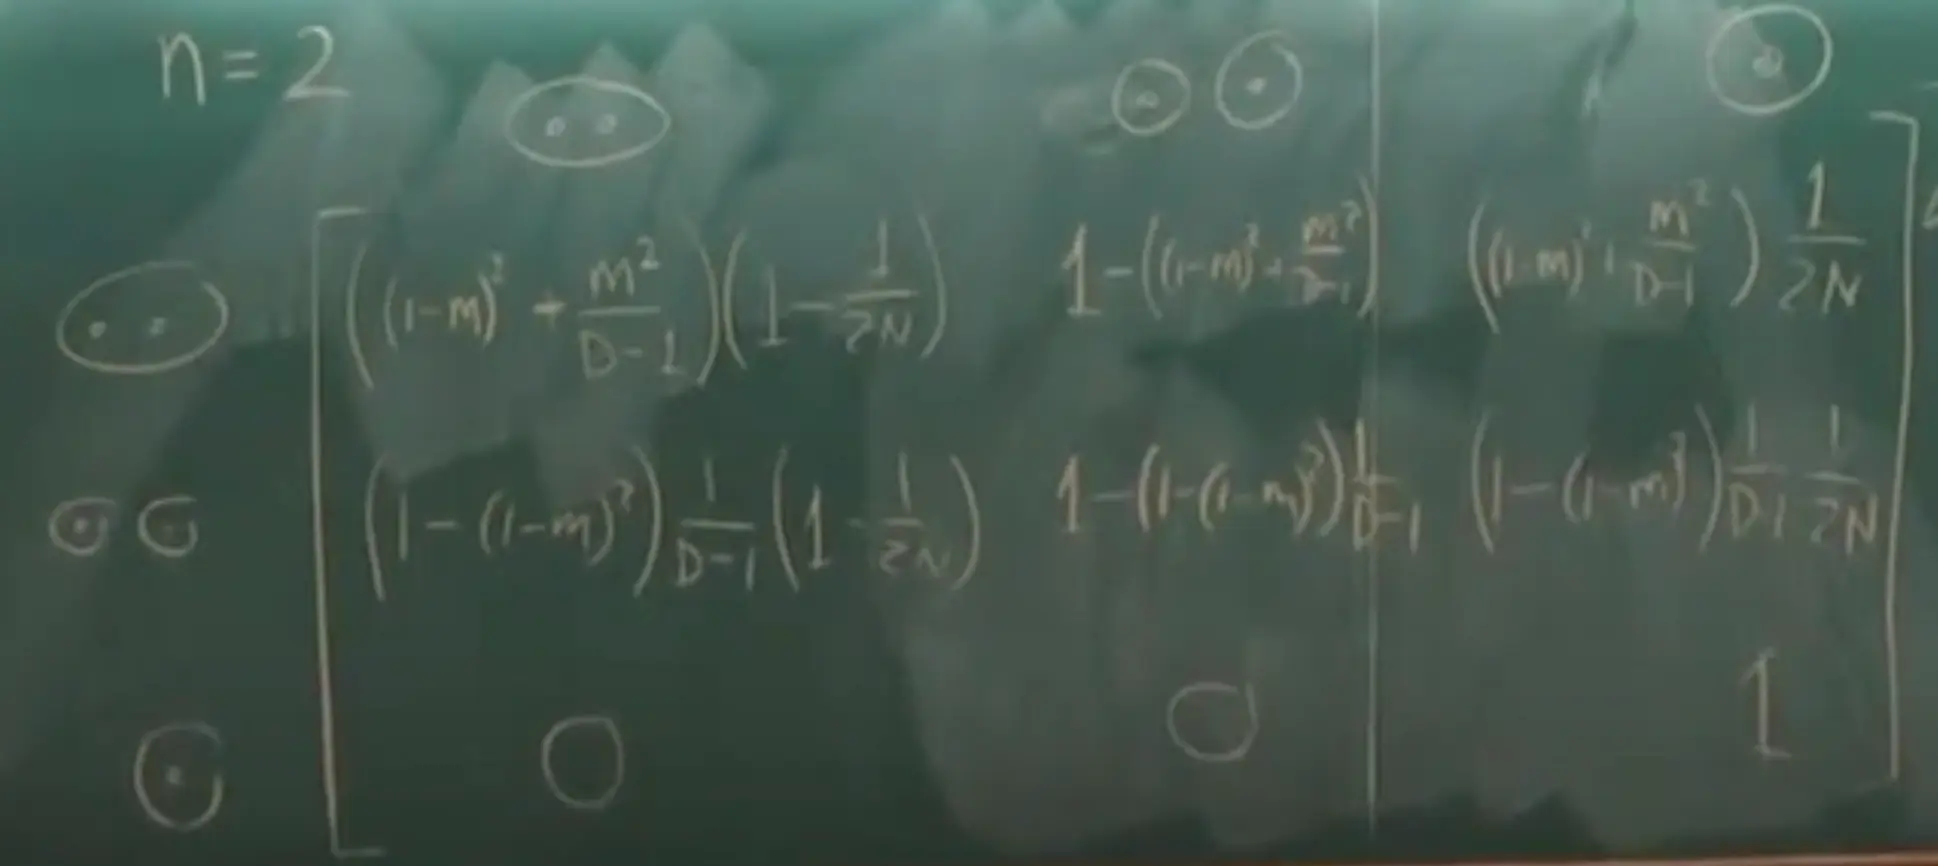 n = 2
((1-m)² + m²/(D-1))(1 - 1/2N) 1-((1-m)² + m²/(D-1)) ((1-m)² + m²/(D-1)) 1/2N
(1-(1-m)²) 1/(D-1) (1 - 1/2N) 1-(1-(1-m)²) 1/(D-1) (1-(1-m)²) 1/(D-1) 1/2N
0 0 1